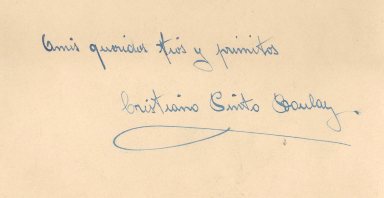 Amis queridos tios y primitos
Cristiano Pinto